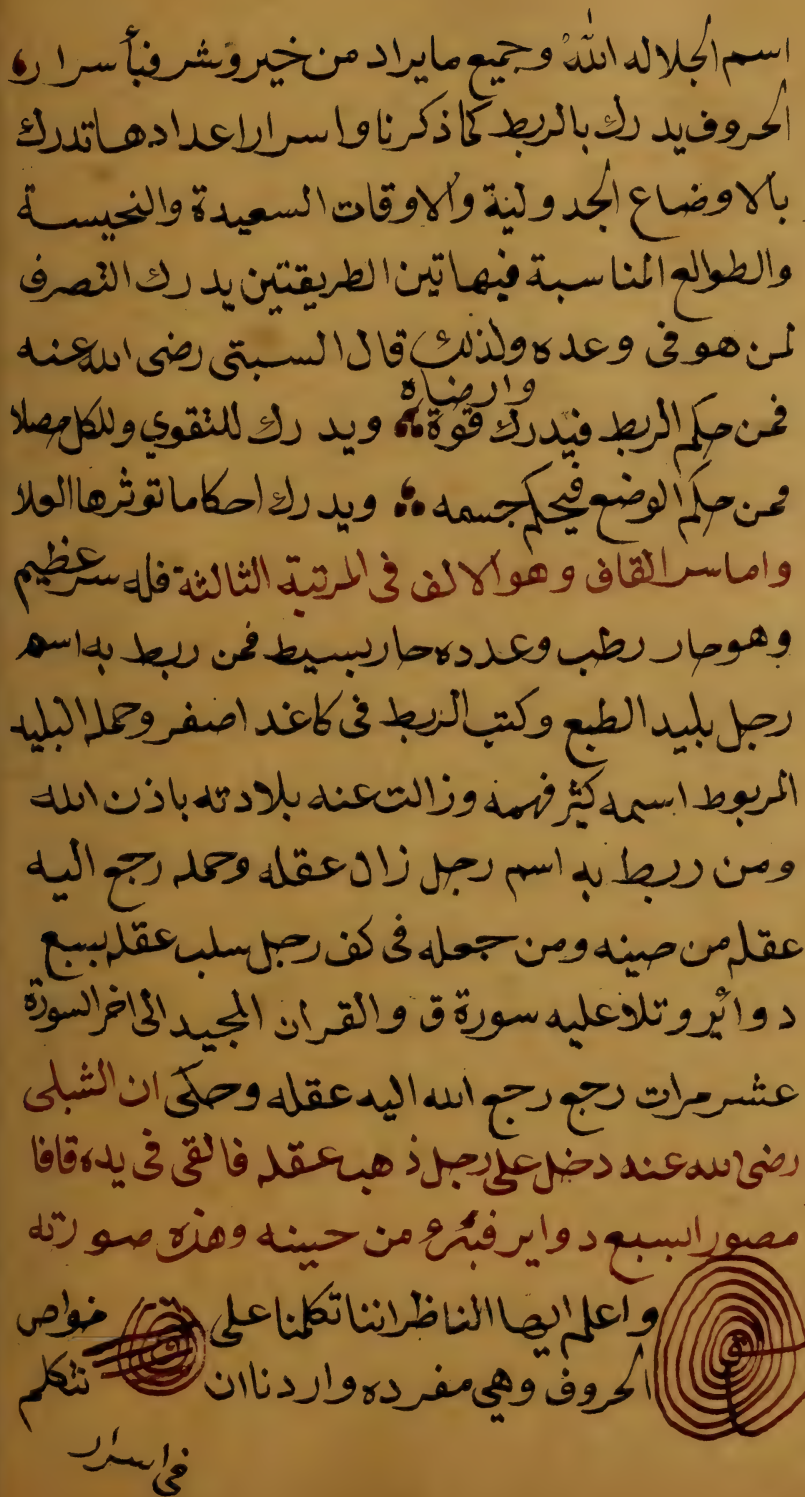 اسم الجلاله الله وجميع مايراد من خير وشر فبأسرار
الحروف يدرك بالربط كما ذكرنا واسرار اعدادها تدرك
بالاوضاع الجدولية والاوقات السعيدة والنحيسة
والطوالع المناسبة فبهاتين الطريقتين يدرك التصرف
لمن هو في وعده ولذلك قال السبتي رضى الله عنه
وارضاه
فمن حكم الربط فيدرك قوة ويدرك للتقوي وللكل حصلا
فمن حكم الوضع فيحكم جسمه ويدرك احكاما توثرها العلا
واما سر القاف وهو الالف في المرتبة الثالثة فله سر عظيم
وهو حار رطب وعدده حار بسيط فمن ربط به اسم
رجل بليد الطبع وكتب الربط في كاغد اصفر وحمله البليد
المربوط اسمه كثر فهمه وزالت عنه بلادته باذن الله
ومن ربط به اسم رجل زال عقله وحمله رجع اليه
عقله من حينه ومن جعله في كف رجل سلب عقله بسبع
دوائر وتلا عليه سورة ق والقران المجيد الى اخر السورة
عشر مرات رجع رجع الله اليه عقله وحكى ان الشبلي
رضى الله عنه دخل على رجل ذهب عقله فالقى في يده قافا
مصورا بسبع دواير فبرء من حينه وهذه صورته
واعلم ايها الناظر اننا تكلمنا على خواص
الحروف وهي مفرده واردنا ان نتكلم
في اسرار